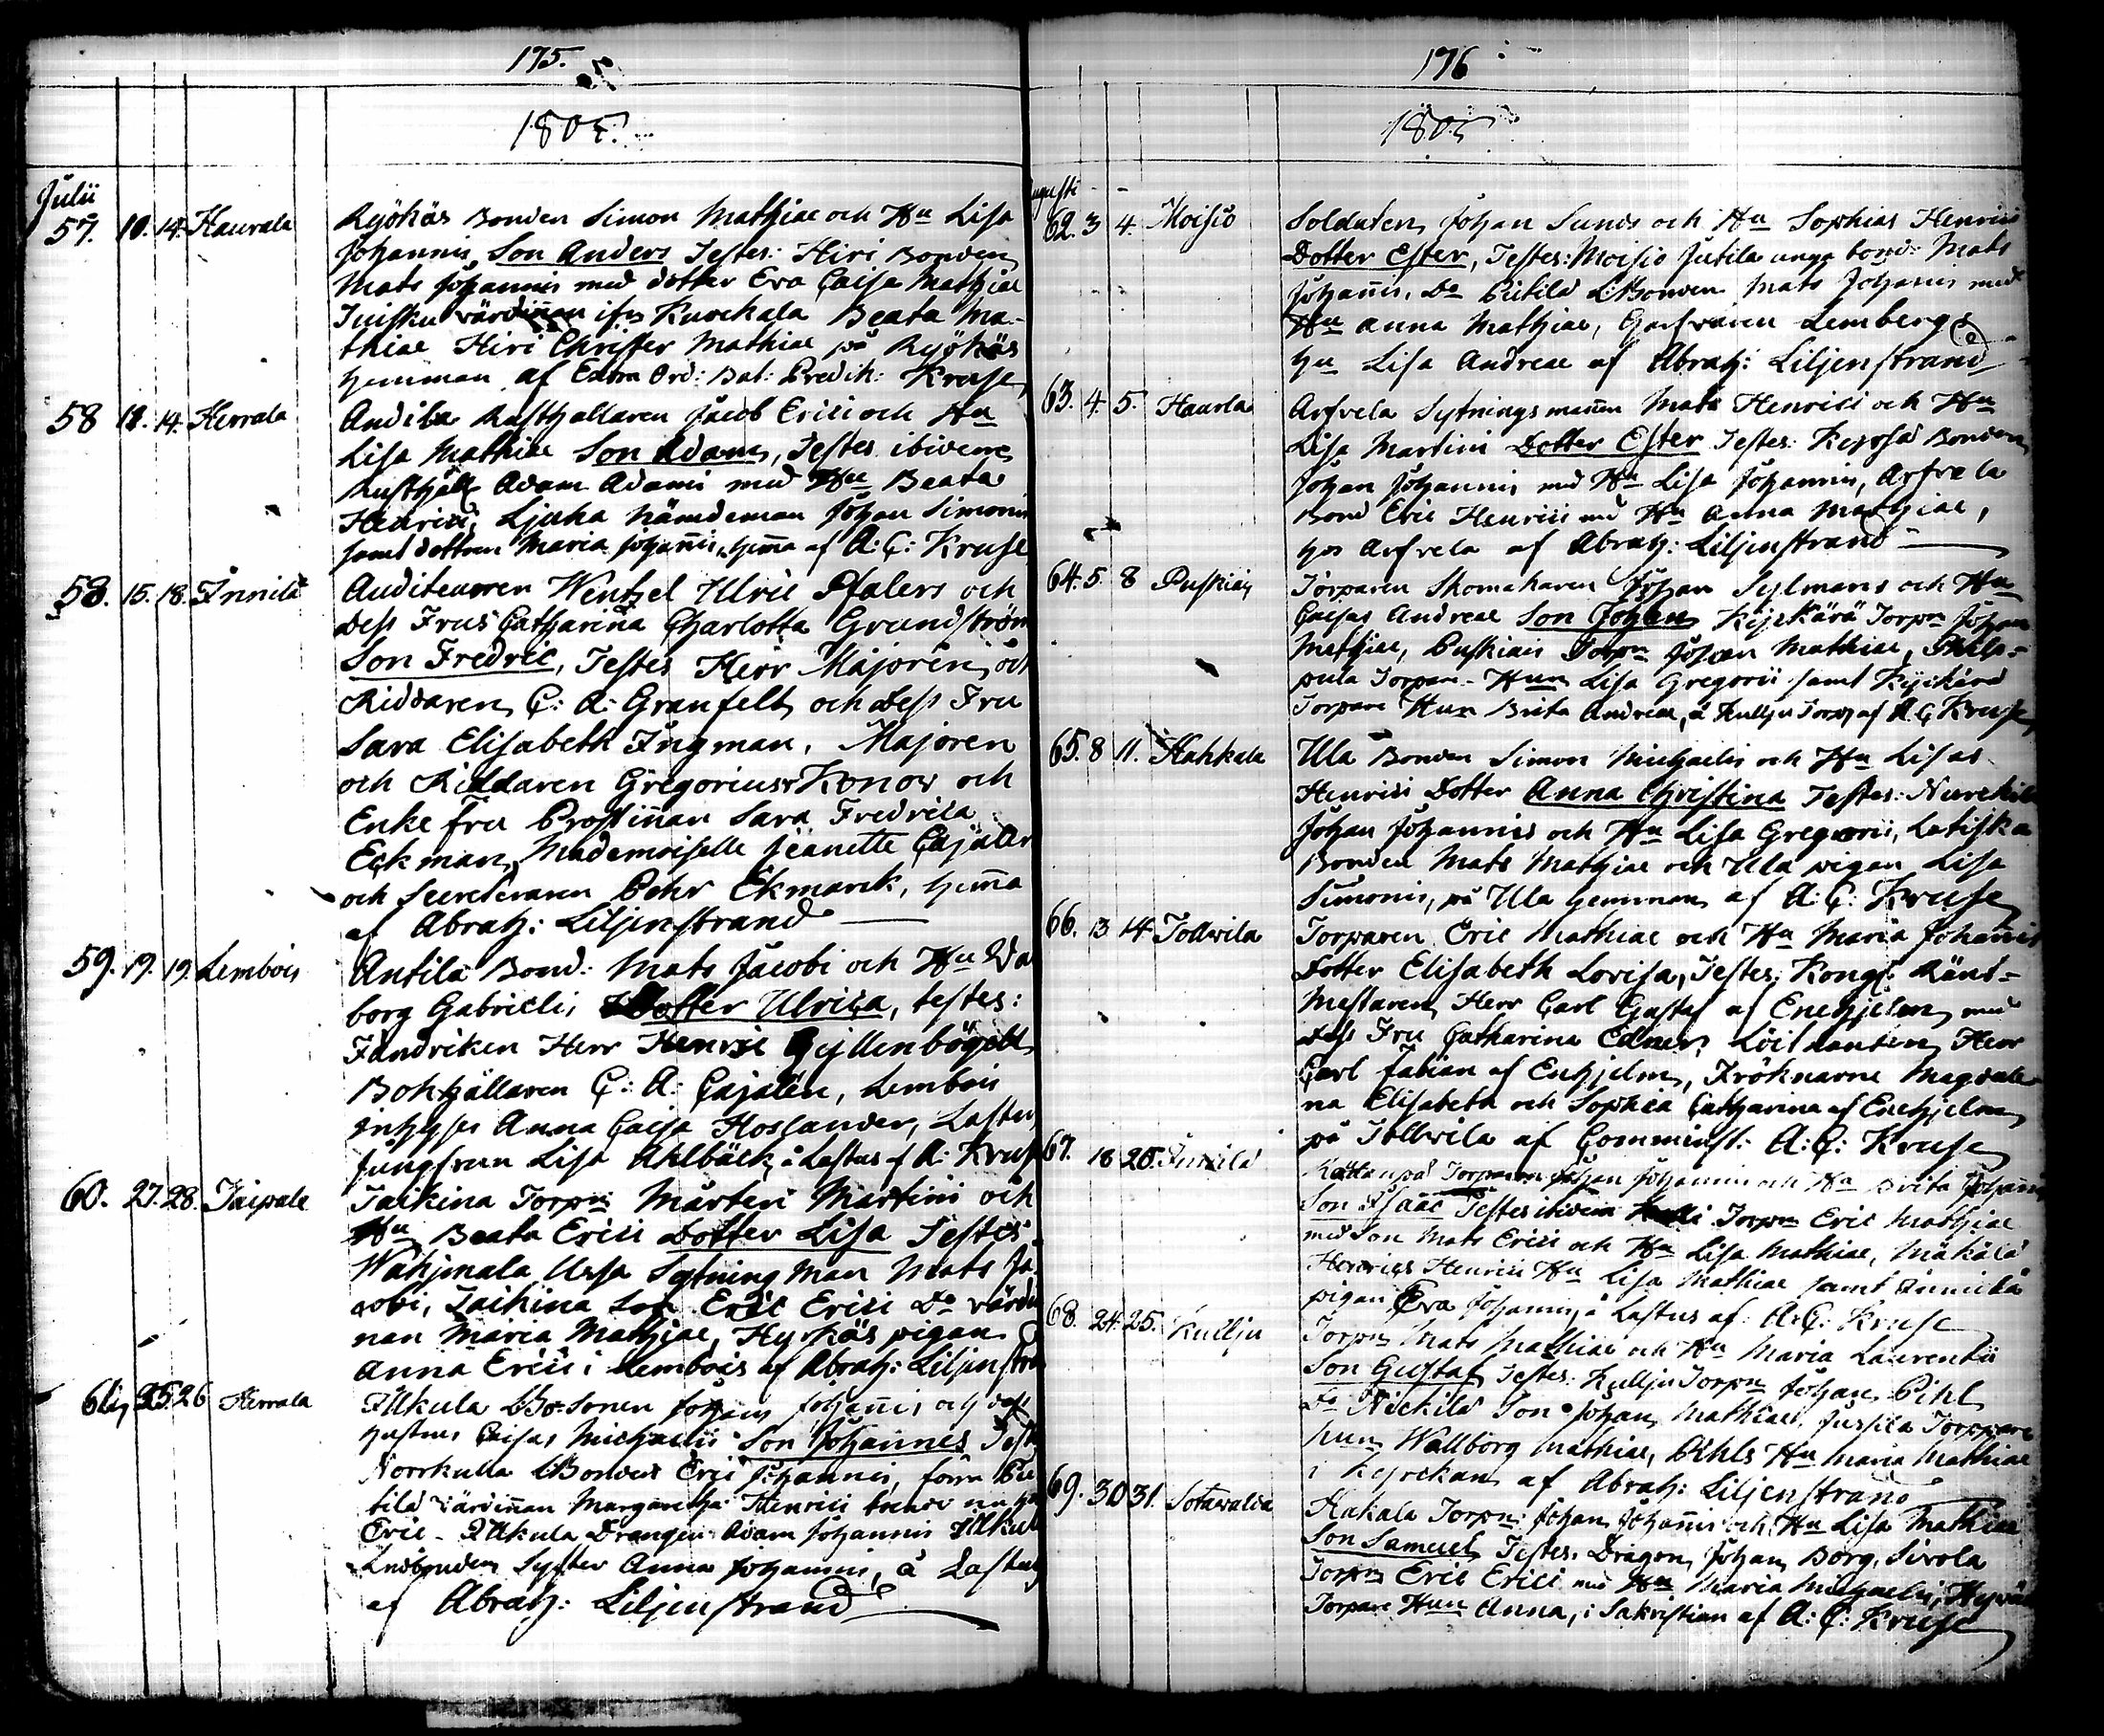 175.
1805.
Julii
57. 10. 14. Haurala Ryökäs Bonden Simon Mathiae och Hu Lisa
Johannis, Son Anders Testes: Hiri Bonden
Mats Johannis med dotter Eva Caisa Mathiae
värdinnan Beata Ma-
thiae Hiri Christer Mathiae på Ryökäs
hemman af Extra Ord: Bat: Predik: Kruse
58 12. 14. Herrala Andila Rusthållaren Jacob Erici och Hu
Lisa Mathiae Son Adam, Testes ibidem
Rusthåll Adam Adami med Hu Beata
Henrici, Ljuha nämdeman Johan Simonis
samt dottren Maria Johannis, hema af A: C: Kruse
58. 15. 18. Innilä Auditeuren Wentzel Ulric Pfalers och
dess Fru Catharina Charlotta Grundström
Son Fredric, Testes Herr Majoren och
Riddaren C: A: Granfelt och dess Fru
Sara Elisabeth Ingman, Majoren
och Riddaren Gregorius Konow och
Enke Fru Prostinnan Sara Fredrica
Eckman, Mademoiselle Jeanette Cajaler
och Secreteraren Pehr Ekmarck, hema
af Abrah: Liljenstrand
59. 19. 19. Lembois Antila Bond: Mats Jacobi och Hu Wa
borg Gabrieli, Dotter Ulrica, testes:
Fändriken Herr Henric Gyllenbögell
Bokhållaren C: A: Cajalén, Lembois
inhyses Anna Caisa Hoslander, Lastus
Jungfrun Lisa Ahlbäck, å Lastus af A: Kruse
60. 27. 28. Taipale Taikina Torpn: Mårten Martini och
Hu Beata Erici Dotter Lisa Testes:
Wähjmala Ussa Sytning man Mats Ja
cobi, Taikina Son Eric Erici Do värdi
nan Maria Mathiae, Hyrkäs pigan
Anna Erici i Lembois af Abrah: Liljenstra
61 25 26 Herrala Illkula Bo-Sonen Johan Johannis och dess
hustru Caisa Michaelis Son Johannes Test
Norrkulla Bonden Eric Johannis, förra
tilä värdinnan Margaretha Henrici
Eric Illkula Drängen Adam Johannis Illkul
Landbonden Syster Anna Johannis, å Lastus
af Abrah: Liljenstrand
176
1805
Augusti
62. 3 4. Moisio Soldaten Johan Sund och Hu Sophia Henrici
Dotter Ester, Testes: Moisio Jutila unga bond: Mats
Johannis, Do Pietilä Bonden Mats Johannis med
Hu Anna Mathiae, Garfvaren Lembergs
Hu Lisa Andreae af Abrah: Liljenstrand
63. 4. 5. Haurla Arfvela Sytningsmannen Mats Henrici och Hu
Lisa Martini Dotter Ester Testes: Bonden
Johan Johannis med Hu Lisa Johannis, Arfvela
Bond Eric Henrici med Hu Anna Mathiae,
hos Arfvela af Abrah: Liljenstrand
64. 5. 8 Puskiais Torparen Skomakaren Johan Sylman och Hu
Caisa Andreae Son Johan Torpn Johan
Mathiae, Puskiais Torpn Johan Mathiae, Philp-
pula Torpare- Hun Lisa Gregorii samt
Torpare Hun Brita Andreae, å Kullju Torp af A C Kruse
65. 8 11. Hahkala Ula Bonden Simon Michaelis och Hu Lisa
Henrici Dotter Anna Christina Testes:
Johan Johannis och Hu Lisa Gregorii,
Bonden Mats Mathiae och Ula pigan Lisa
Simonis, på Ula hemman af A: C: Kruse
66. 13 14 Tollwila Torparen Eric Mathiae och Hu Maria Johannis
Dotter Elisabeth Lovisa, Testes: Kongl: Ränt-
mestaren Herr Carl Gustaf af Enehjelm med
dess Fru Catharina Edner, Löitnanten Herr
Carl Fabian af Enehjelm, Fröknarne Magdale
na Elisabeth och Sophia Catharina af Enehjelm
på Tollwila af Comminist: A: C: Kruse
67. 18 20. Innilä Torparen Johan Johannis och Hu Brita Johannis
Son Isaac Testes ibidem Torpn Eric Mathiae
med Son Mats Erici och Hu Lisa Mathiae, Mäkälä
Henrics Henrici Hu Lisa Mathiae samt Innilä
pigan Eva Johannis, å Lastus af A: C: Kruse
68. 24. 25. Kullju Torpn Mats Mathiae och Hu Maria Laurentii
Son Gustaf Testes: Kullju Torpn Johan Pihl
Do Nickilä Son Johan Mathiae, Torppare
hun Wallborg Mathiae, Pihls Hu Maria Mathiae
i Kyrckan af Abrah: Liljenstrand
69. 30 31. Sotavalda Hakala Torpn: Johan Johannis och Hu Lisa Mathiae
Son Samuel Testes: Dragon Johan Borg, Sirola
Torpn Eric Erici med Hu Maria Michaelis,
Torpare Hun Anna, i Sakristian af A: C: Kruse